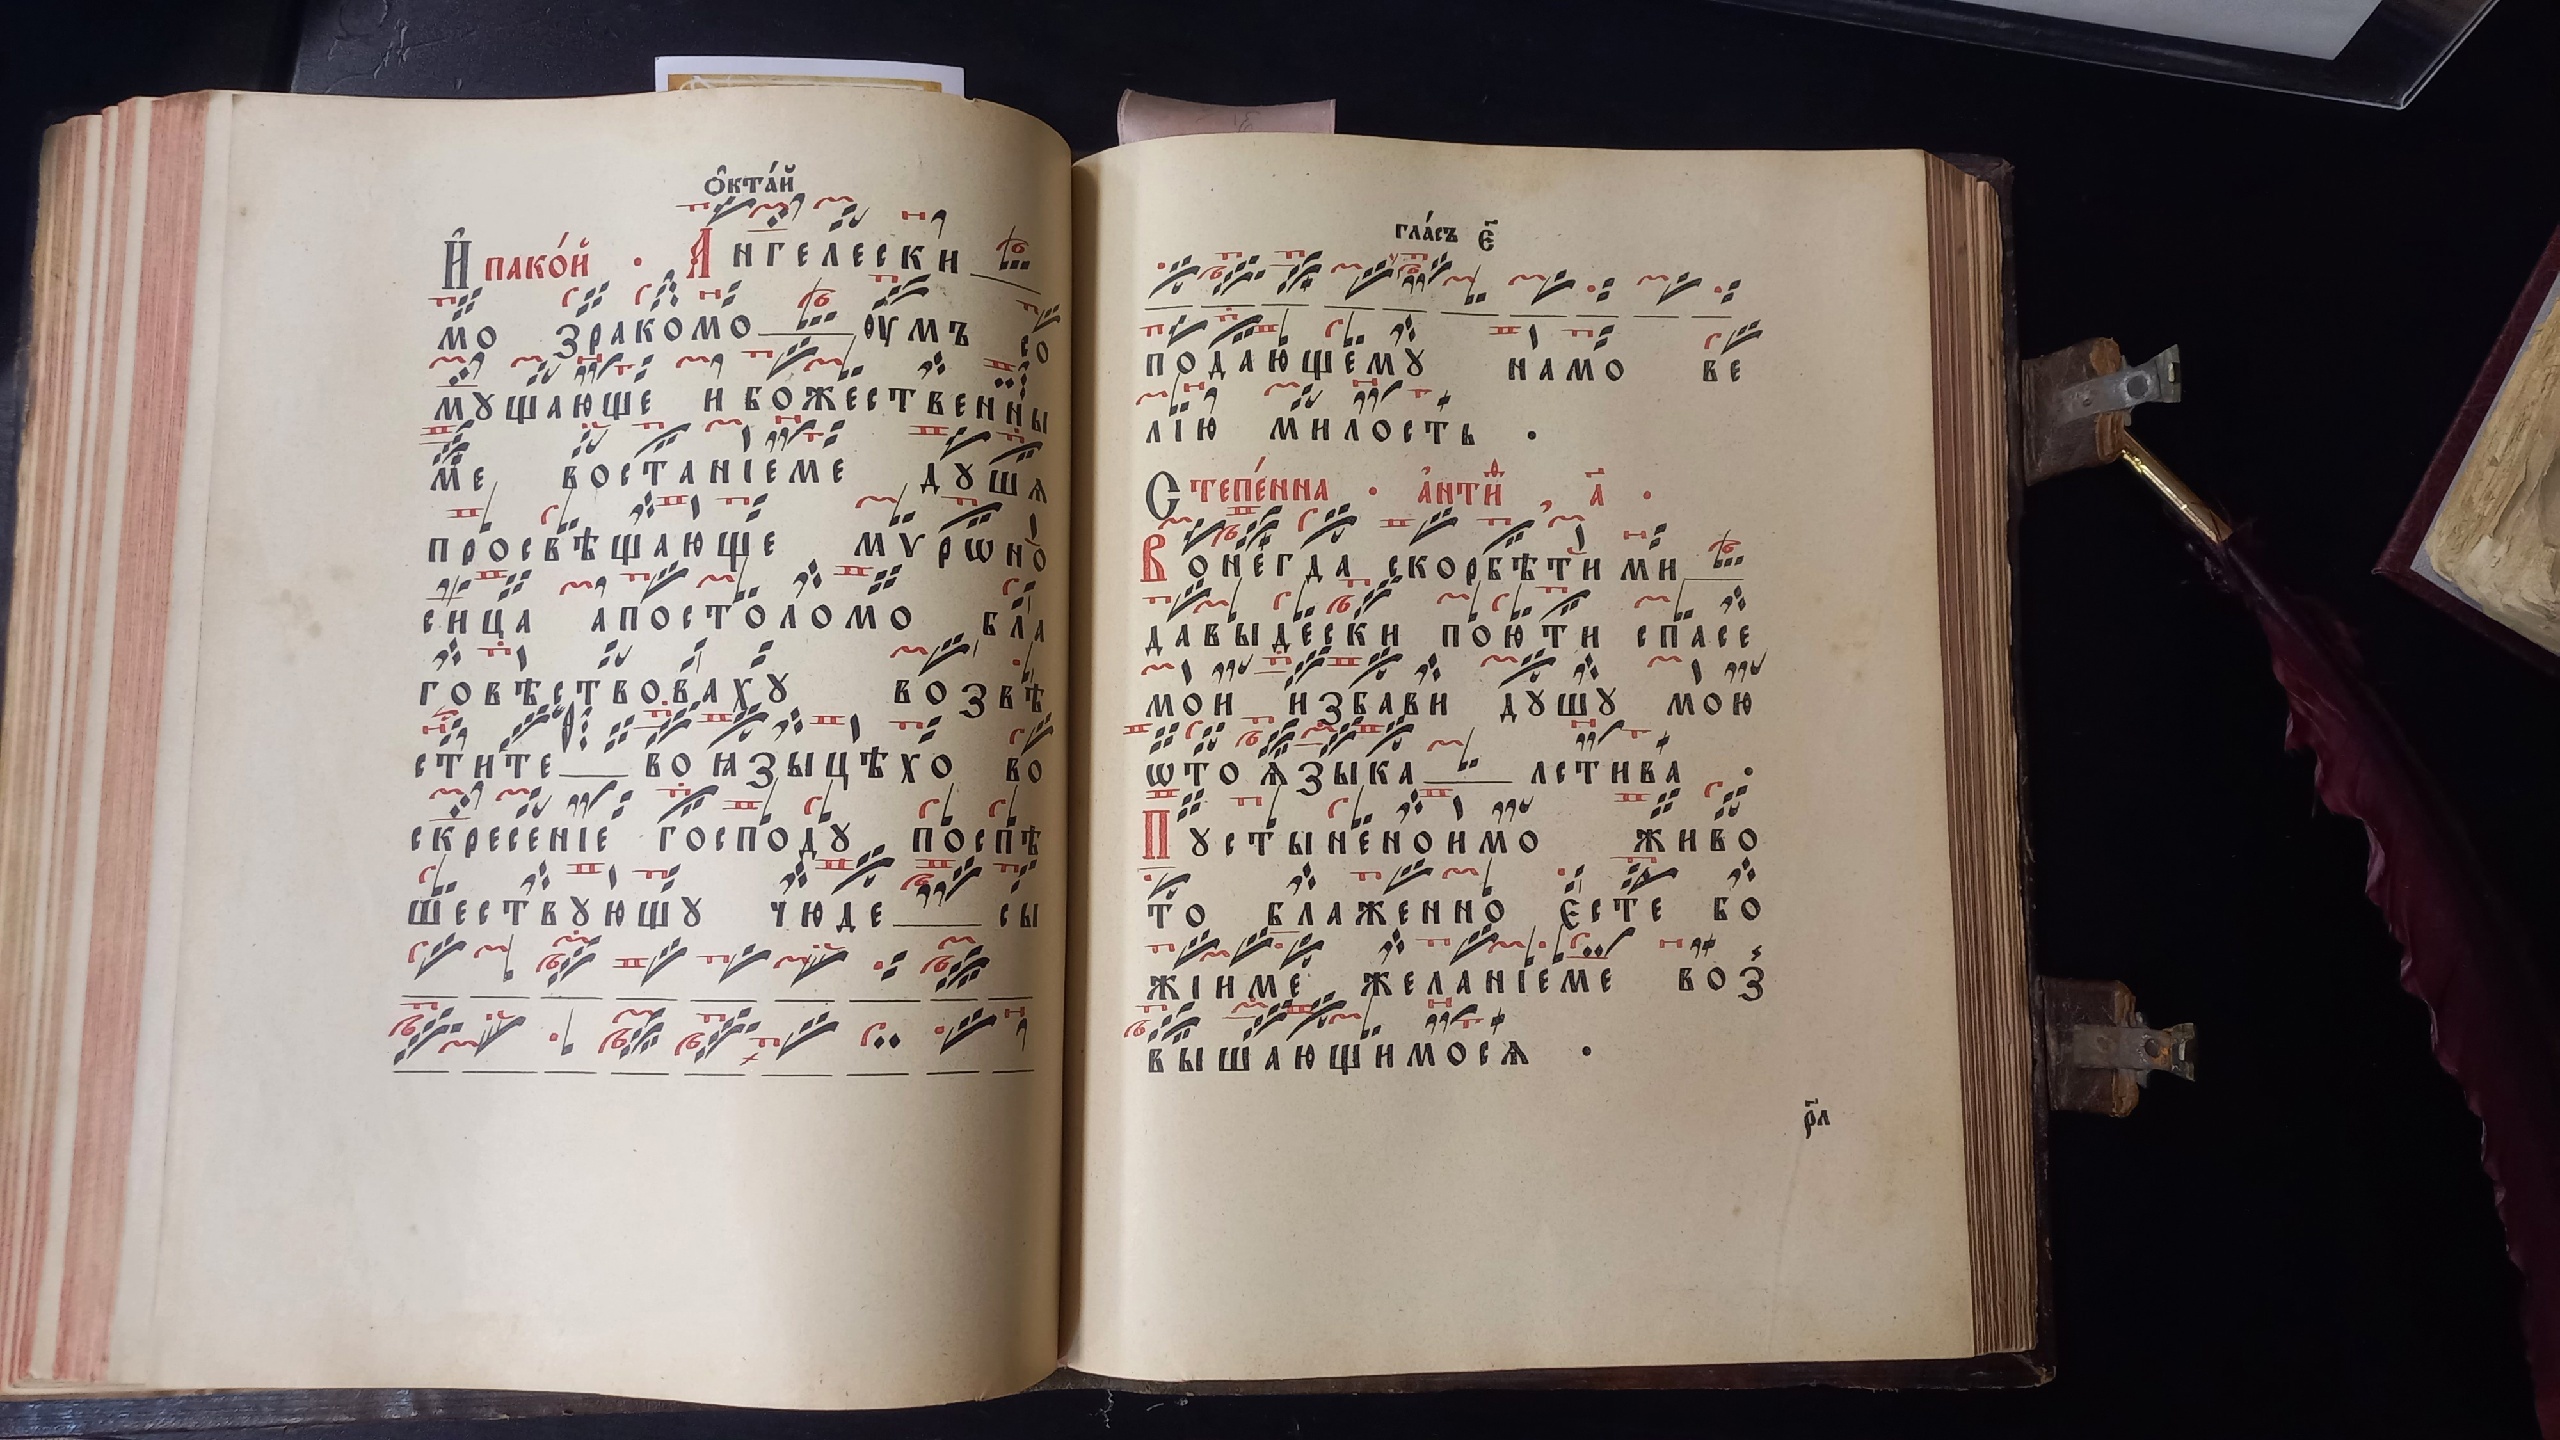 Ѻ҆кта́й
И҆пако́й . Ангелески
мо зракомо ѹмъ со
мꙋщающе и божественны
ме востанїеме дꙋша
просвѣщающе мѵрѡно
сица апостоломо бла
говѣствовахꙋ возвѣ
стите во ꙗзыцѣхо во
скресенїе господꙋ поспѣ
шествꙋющꙋ чюде сы
гла́съ є҃
подающемꙋ намо ве
лїю милость .
Степе́нна . а҆нтиⷴ҇ , а҃ .
Вонегда скорбѣти ми
давыдески пою ти спасе
мои избави дꙋшꙋ мою
ѡто ѧзыка лстива .
Пꙋстыненоимо живо
то блаженно єсте бо
жїиме желанїеме воз
вышающимосѧ .
р҃л